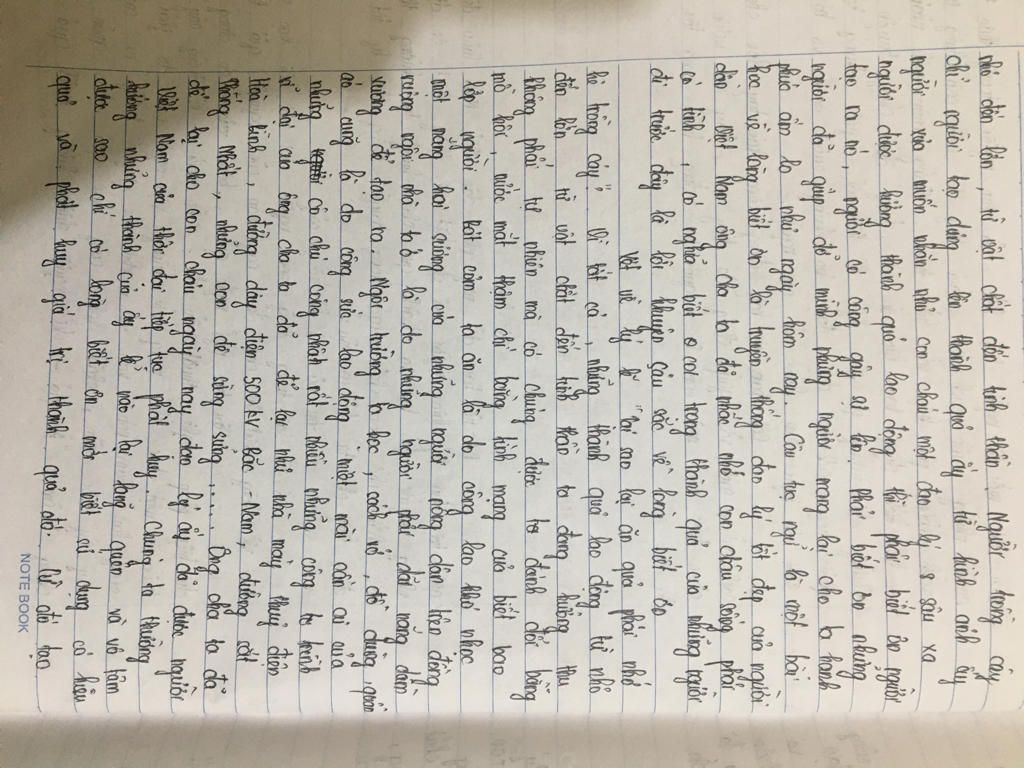 nhỏ đến lớn, từ vật chất đến tinh thần. Người trồng cây
chỉ người tạo dựng lên thành quả ấy từ hình ảnh ấy
người xưa muốn nhắn nhủ con cháu một đạo lý sâu xa
người được hưởng thành quả lao động thì phải biết ơn người
tạo ra nó, người có công gây sự lên. Phải biết ơn những
người đã giúp đỡ mình những người mang lại cho ta hạnh
phúc ấm lo như ngày hôm nay. Câu tục ngữ là một bài
học về lòng biết ơn là truyền thống đạo lý tốt đẹp của người
dân Việt Nam ông cha ta đã nhắc nhở con cháu sống phải
có tình, có nghĩa biết coi trọng thành quả của những người
đi trước đây là lời khuyên sâu sắc về lòng biết ơn
Xét về lý lẽ "tại sao lại ăn quả phải nhớ
kẻ trồng cây" Vì tất cả, những thành quả lao động từ nhỏ
đến lớn từ vật chất đến tinh thần ta đang hưởng thụ
không phải tự nhiên mà có chúng được đánh đổi bằng
mồ hôi, nước mắt thậm chí bằng tính mạng của biết bao
lớp người. Bát cơm ta ăn là do công lao khó nhọc
một nắng hai sương của những người nông dân trên đồng
ruộng ngôi nhà ta ở là do những người phải dãi nắng dầm
sương để tạo ra. Ngôi trường ta học, sách vở, đồ dùng, quần
áo cũng là do công sức lao động miệt mài cần cù của
những cô chú công nhân rất nhiều những công trình
vĩ đại cha ông cha ta đã để lại như nhà máy thuỷ điện
Hòa bình, đường dây điện 500 KV Bắc - Nam, đường sắt
thống Nhất, những con đê sừng sững ..... Ông cha ta đã
để lại cho con cháu ngày nay đạo lý ấy đã được người
Việt Nam của thời đại tiếp tục phát huy. Chúng ta thường
hưởng những thành của ấy lẽ nào lại lãng quên và vô tâm
được sao chỉ có lòng biết ơn mới biết sử dụng có hiệu
quả và phát huy giá trị thành quả đó. Từ đó tạo
NOTE BOOK